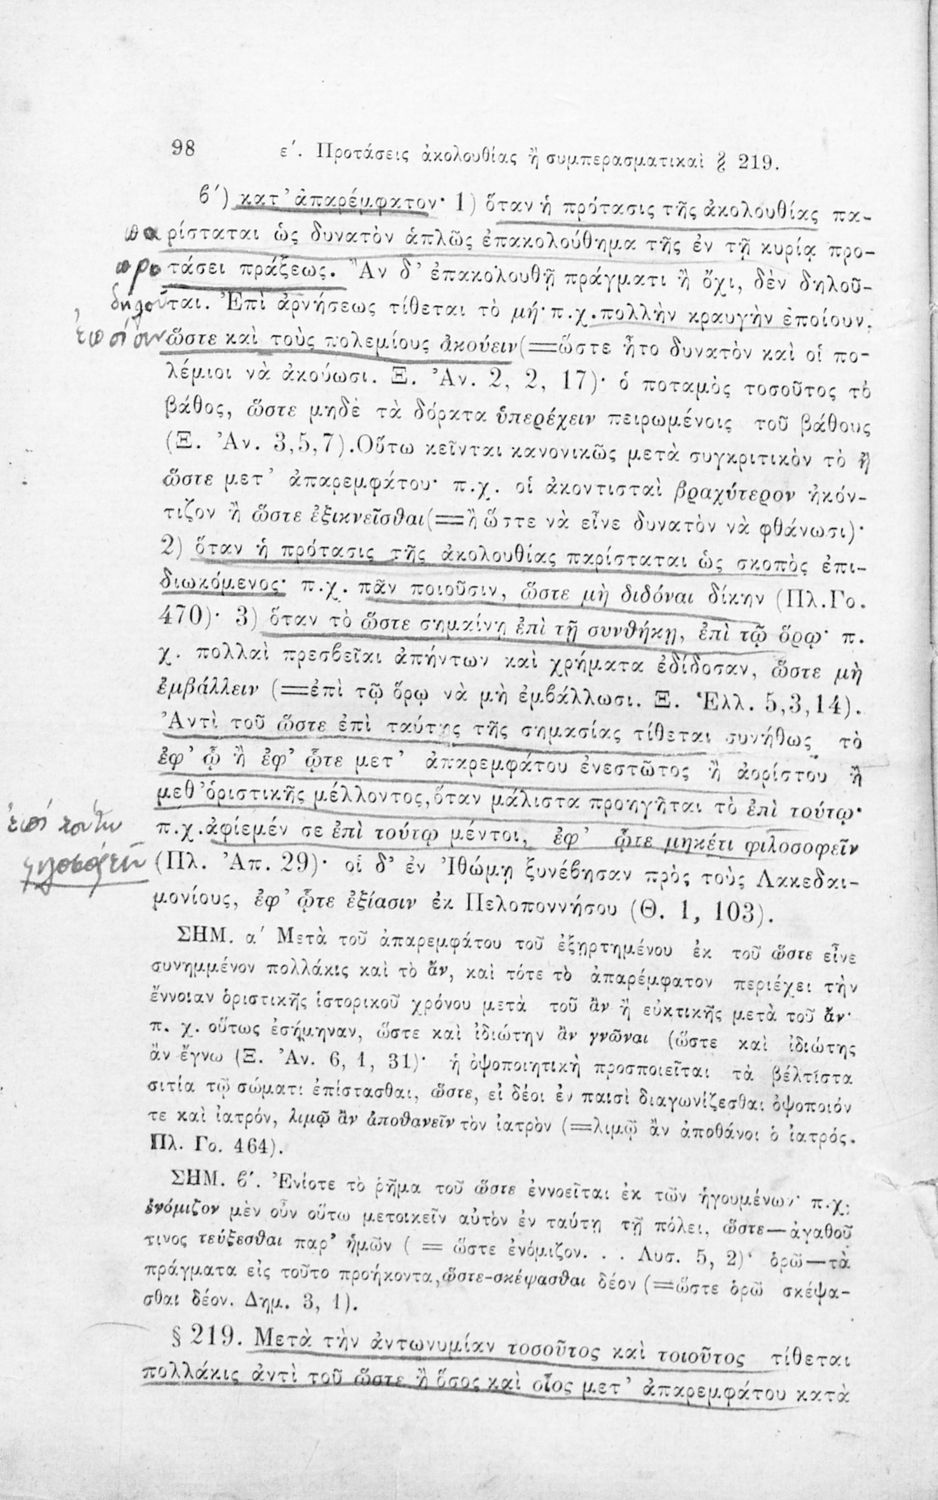 98 ε΄. Προτάσεις ἀκολουθίας ἢ συμπερασματικαὶ § 219.
β΄) κατ' ἀπαρέμφατον· 1) ὅταν ἡ πρότασις τῆς ἀκολουθίας πα-
ρίσταται ὡς δυνατὸν ἁπλῶς ἐπακολούθημα τῆς ἐν τῇ κυρίᾳ προ-
τάσει πράξεως. Ἂν δ' ἐπακολουθῇ πράγματι ἢ ὄχι, δὲν δηλοῦ-
ται. Ἐπὶ ἀρνήσεως τίθεται τὸ μή· π.χ. πολλὴν κραυγὴν ἐποίουν,
ὥστε καὶ τοὺς πολεμίους ἀκούειν (=ὥστε ἦτο δυνατὸν καὶ οἱ πο-
λέμιοι νὰ ἀκούωσι. Ξ. Ἀν. 2, 2, 17)· ὁ ποταμὸς τοσοῦτος τὸ
βάθος, ὥστε μηδὲ τὰ δόρατα ὑπερέχειν πειρωμένοις τοῦ βάθους
(Ξ. Ἀν. 3,5,7). Οὕτω κεῖνται κανονικῶς μετὰ συγκριτικὸν τὸ ἢ
ὥστε μετ' ἀπαρεμφάτου· π.χ. οἱ ἀκοντισταὶ βραχύτερον ἠκόν-
τιζον ἢ ὥστε ἐξικνεῖσθαι (=ἢ ὥστε νὰ εἶνε δυνατὸν νὰ φθάνωσι)·
2) ὅταν ἡ πρότασις τῆς ἀκολουθίας παρίσταται ὡς σκοπὸς ἐπι-
διωκόμενος· π.χ. πᾶν ποιοῦσιν, ὥστε μὴ διδόναι δίκην (Πλ. Γο.
470)· 3) ὅταν τὸ ὥστε σημαίνῃ ἐπὶ τῇ συνθήκῃ, ἐπὶ τῷ ὅρῳ· π.
χ. πολλαὶ πρεσβεῖαι ἀπήντων καὶ χρήματα ἐδίδοσαν, ὥστε μὴ
ἐμβάλλειν (=ἐπὶ τῷ ὅρῳ νὰ μὴ ἐμβάλλωσι. Ξ. Ἑλλ. 5,3,14).
Ἀντὶ τοῦ ὥστε ἐπὶ ταύτης τῆς σημασίας τίθεται συνήθως τὸ
ἐφ' ᾧ ἢ ἐφ' ᾧτε μετ' ἀπαρεμφάτου ἐνεστῶτος ἢ ἀορίστου ἢ
μεθ' ὁριστικῆς μέλλοντος, ὅταν μάλιστα προηγῆται τὸ ἐπὶ τούτῳ·
π.χ. ἀφίεμέν σε ἐπὶ τούτῳ μέντοι, ἐφ' ᾧτε μηκέτι φιλοσοφεῖν
(Πλ. Ἀπ. 29)· οἱ δ' ἐν Ἰθώμῃ ξυνέβησαν πρὸς τοὺς Λακεδαι-
μονίους, ἐφ' ᾧτε ἐξίασιν ἐκ Πελοποννήσου (Θ. 1, 103).
ΣΗΜ. α΄ Μετὰ τοῦ ἀπαρεμφάτου τοῦ ἐξηρτημένου ἐκ τοῦ ὥστε εἶνε
συνημμένον πολλάκις καὶ τὸ ἄν, καὶ τότε τὸ ἀπαρέμφατον περιέχει τὴν
ἔννοιαν ὁριστικῆς ἱστορικοῦ χρόνου μετὰ τοῦ ἂν ἢ εὐκτικῆς μετὰ τοῦ ἄν·
π. χ. οὕτως ἐσήμηναν, ὥστε καὶ ἰδιώτην ἂν γνῶναι (ὥστε καὶ ἰδιώτης
ἂν ἔγνω (Ξ. Ἀν. 6, 1, 31)· ἡ ὀψοποιητικὴ προσποιεῖται τὰ βέλτιστα
σιτία τῷ σώματι ἐπίστασθαι, ὥστε, εἰ δέοι ἐν παισὶ διαγωνίζεσθαι ὀψοποιόν
τε καὶ ἰατρόν, λιμῷ ἂν ἀποθανεῖν τὸν ἰατρὸν (=λιμῷ ἂν ἀποθάνοι ὁ ἰατρός.
Πλ. Γο. 464).
ΣΗΜ. β΄. Ἐνίοτε τὸ ῥῆμα τοῦ ὥστε ἐννοεῖται ἐκ τῶν ἡγουμένων· π.χ.
ἐνόμιζον μὲν οὖν οὕτω μετοικεῖν αὐτὸν ἐν ταύτῃ τῇ πόλει, ὥστε—ἀγαθοῦ
τινος τεύξεσθαι παρ' ἡμῶν ( = ὥστε ἐνόμιζον. . . Λυσ. 5, 2)· ὁρῶ—τὰ
πράγματα εἰς τοῦτο προήκοντα, ὥστε-σκέψασθαι δέον (=ὥστε ὁρῶ σκέψα-
σθαι δέον. Δημ. 3, 1).
§ 219. Μετὰ τὴν ἀντωνυμίαν τοσοῦτος καὶ τοιοῦτος τίθεται
πολλάκις ἀντὶ τοῦ ὥστε ἢ ὅσος καὶ οἷος μετ' ἀπαρεμφάτου κατὰ